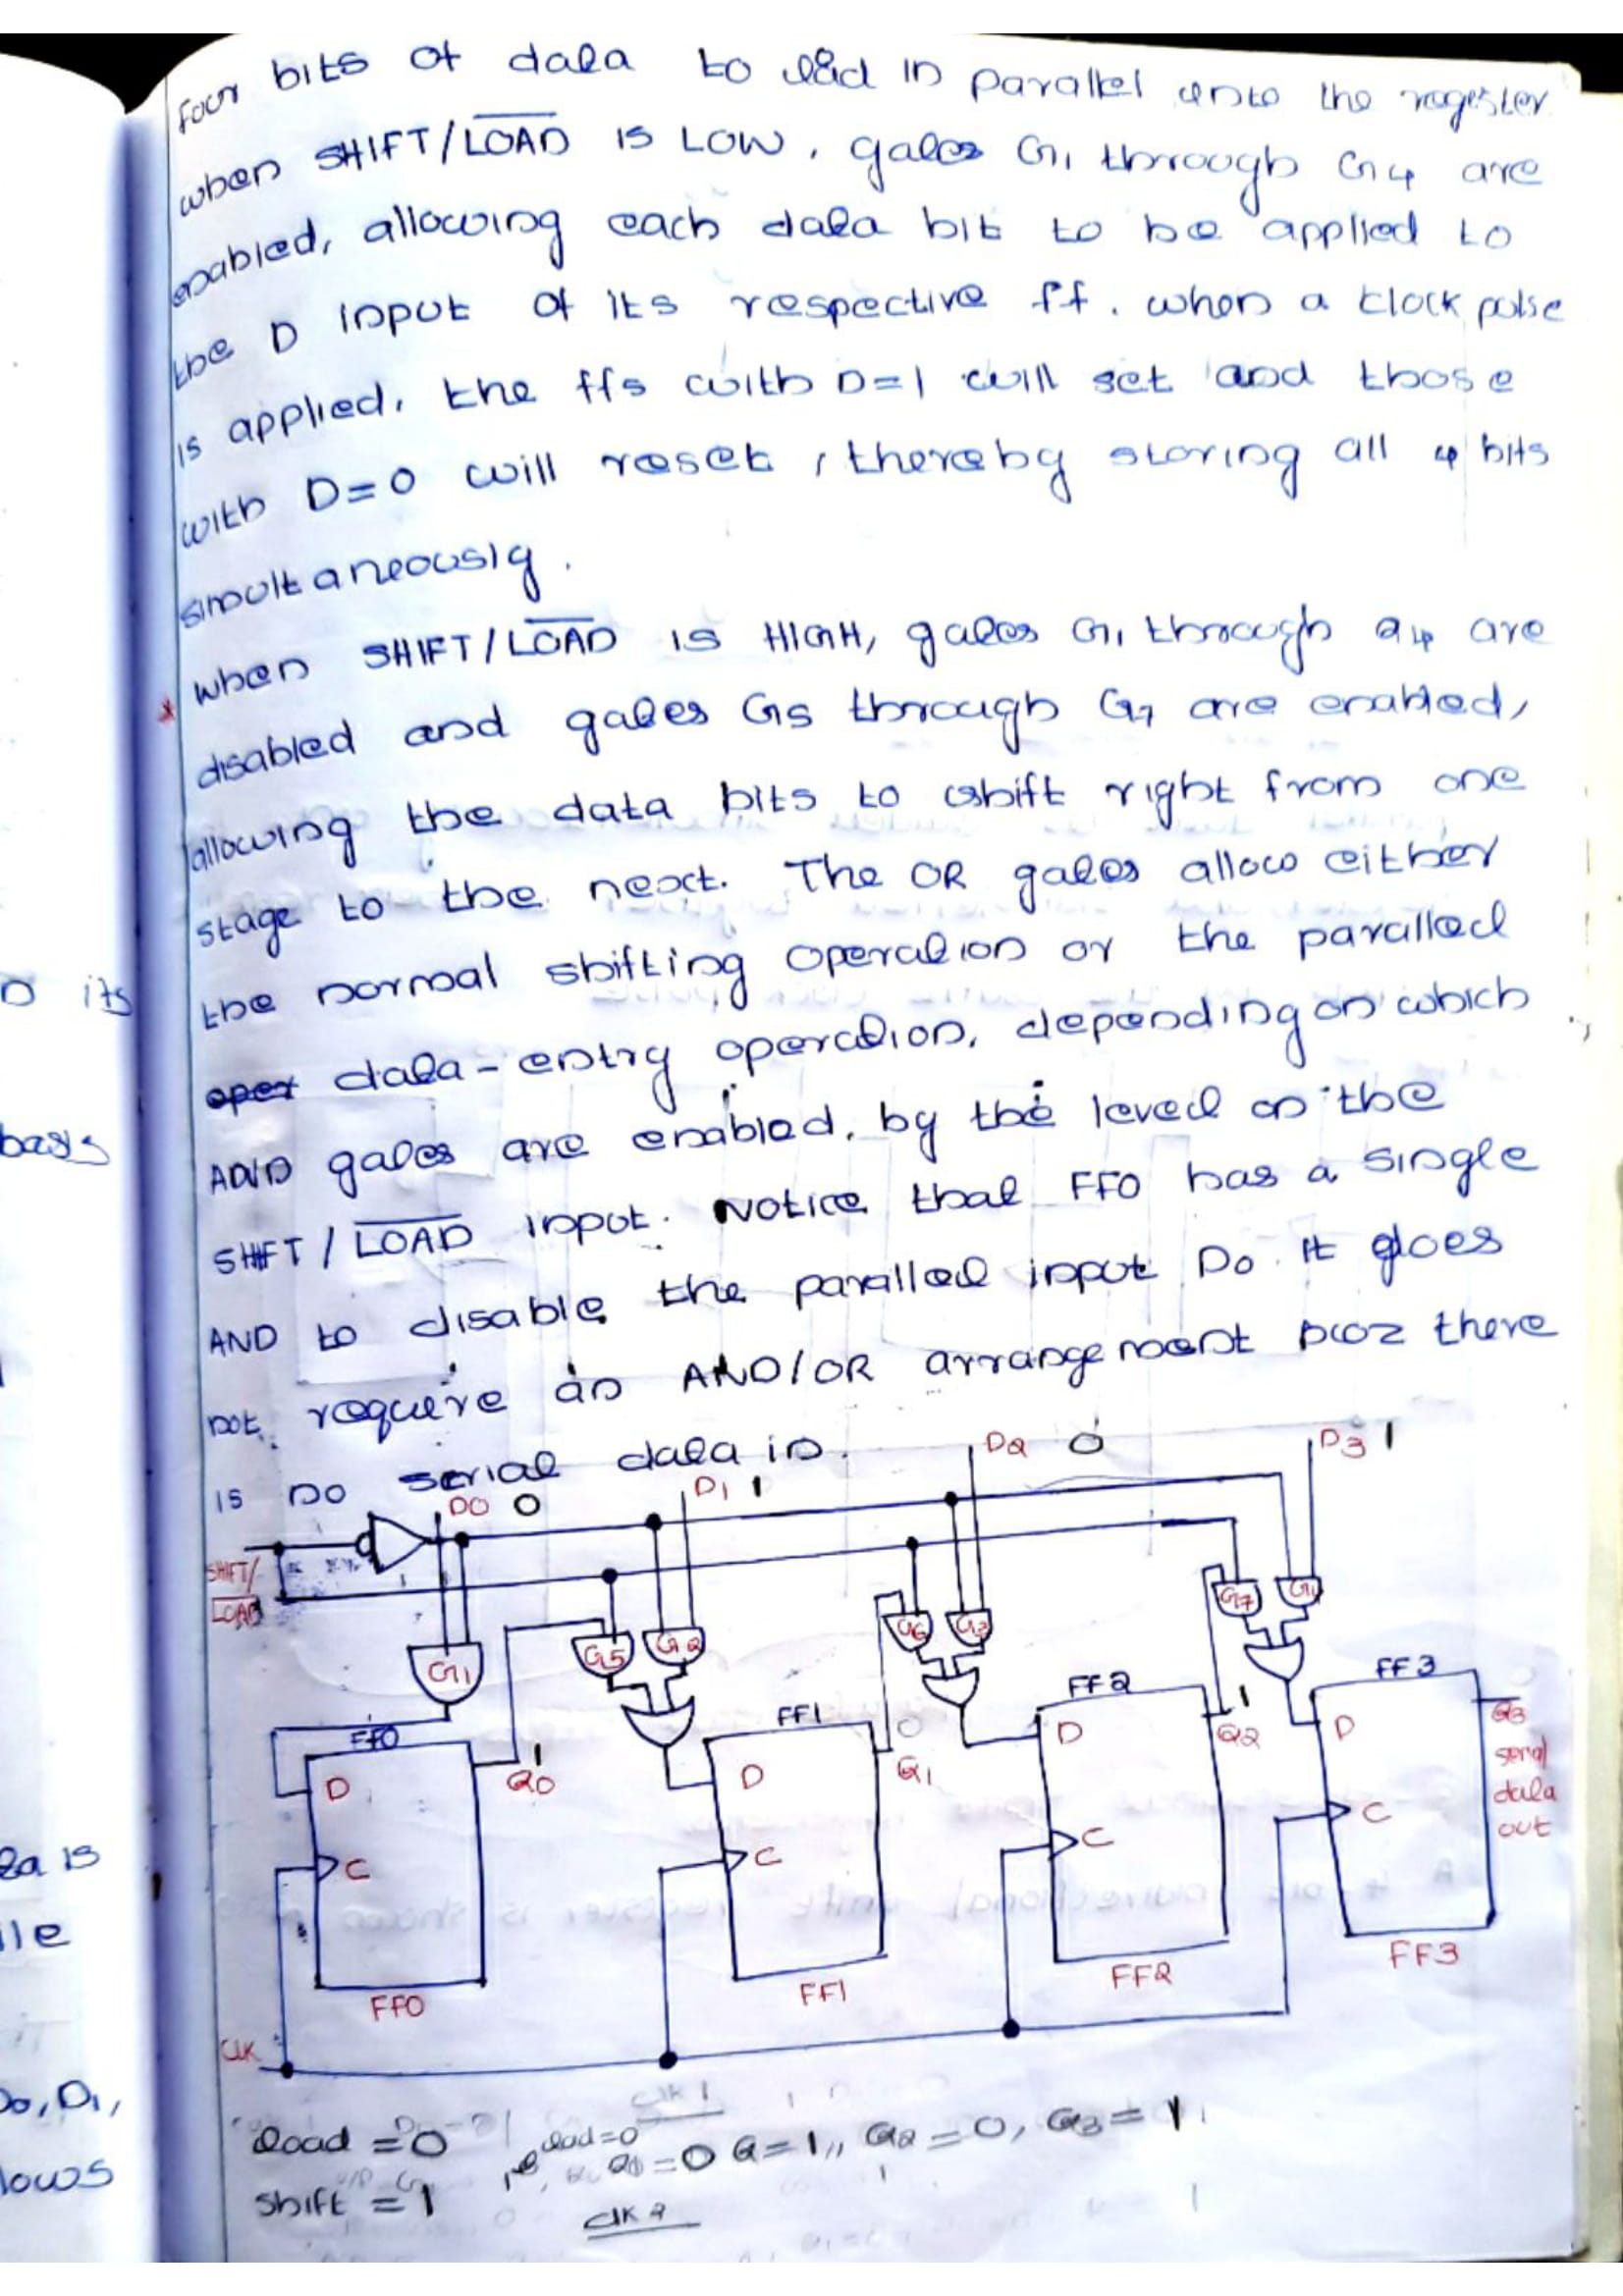 Four bits of data to load in parallel into the register
when SHIFT/LOAD is LOW, gates G1 through G4 are
enabled, allowing each data bit to be applied to
the D input of its respective ff. when a clock pulse
is applied, the ffs with D=1 will set and those
with D=0 will reset, thereby storing all 4 bits
simultaneously.
* when SHIFT/LOAD is HIGH, gates G1 through G4 are
disabled and gates G5 through G7 are enabled,
allowing the data bits to shift right from one
stage to the next. The OR gates allow either
the normal shifting operation or the parallel
oper data-entry operation, depending on which
AND gates are enabled, by the level on the
SHIFT / LOAD input. Notice that FF0 has a single
AND to disable the parallel input D0. It does
not require an AND/OR arrangement bcoz there
is no serial data in.
D its
bass
ta is
ile
D0, D1,
lows
D0 0
D1 1
D2 0
D3 1
SHIFT/
LOAD
G1
G5
G2
G6
G3
G7
FF0
FF1
FF2
FF3
D
Q0
1
D
Q1
0
D
Q2
1
D
Q3
serial
data
out
C
C
C
C
FF0
FF1
FF2
FF3
CLK
clk 1
load = 0
load=0
=0 Q=1,, Q2=0, Q3=1
shift = 1
clk 2